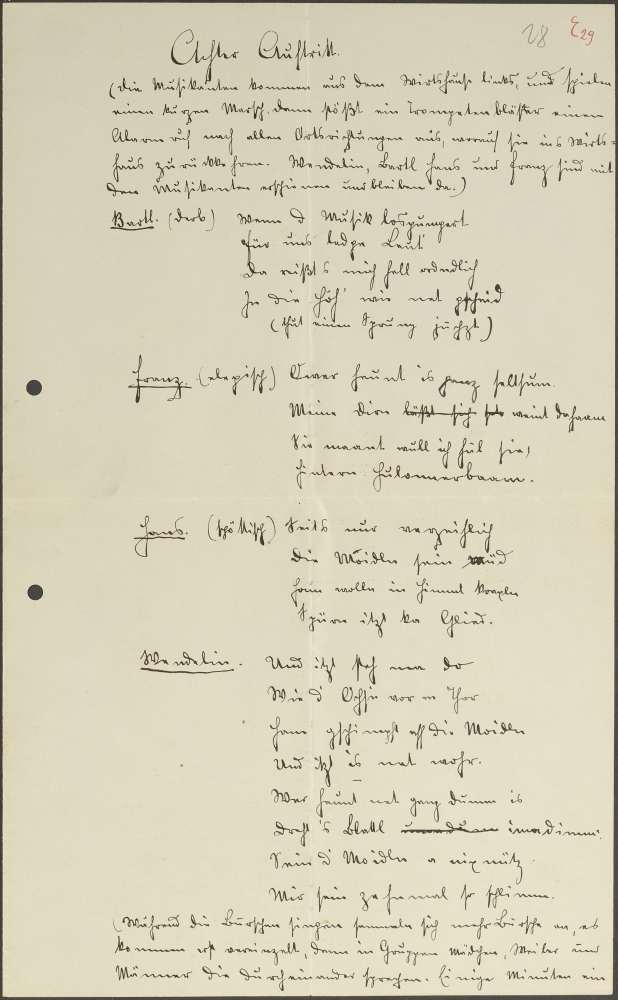 28 29
Achter Auftritt.
(Die Musikanten kommen aus dem Wirtshause links, und spielen
einen kurzen Marsch, dann stößt ein Trompetenbläser einen
Alarmruf nach allen Ortsrichtungen aus, worauf sie ins Wirts-
haus zurückkehren. Wendelin, Bartl Hans und Franz sind mit
den Musikanten erschienen und bleiben da.)
Bartl. (derb) Wenn d Musik lospumpert
Für uns ledge Leut
Da reißt s mich hell ordndlich
In die Höh' wie net gscheid
(thut einen Sprung juchzt)
Franz. (elegisch) Ower heunt is ganz seltsum
Meine Dirn läßt sich weint dahaam
Sie maant wull ich hul sie,
Hintern Hulomerbaam.
Hans. (spöttisch) Seits nur verzeihlich
Die Moidln sein müd
Hom wolln in Himml kraxln
Spürn itzt ka Glied.
Wendelin. Und itzt steh mer do
Wie d Ochsn vor m Thor
Ham gschimpft aff die Moidln
Und itzt is net wohr.
Wer heunt net ganz dumm is
Dreht s Blattl imadimm.
Sein d Moidln a nixnütz
Mir sein zehnmal so schlimm.
(Während die Burschen singen sammeln sich mehr Bursche an, es
kommen erst vereinzelt, dann in Gruppen Mädchen, Weiber und
Männer die durcheinander sprechen. Einige Minuten ein